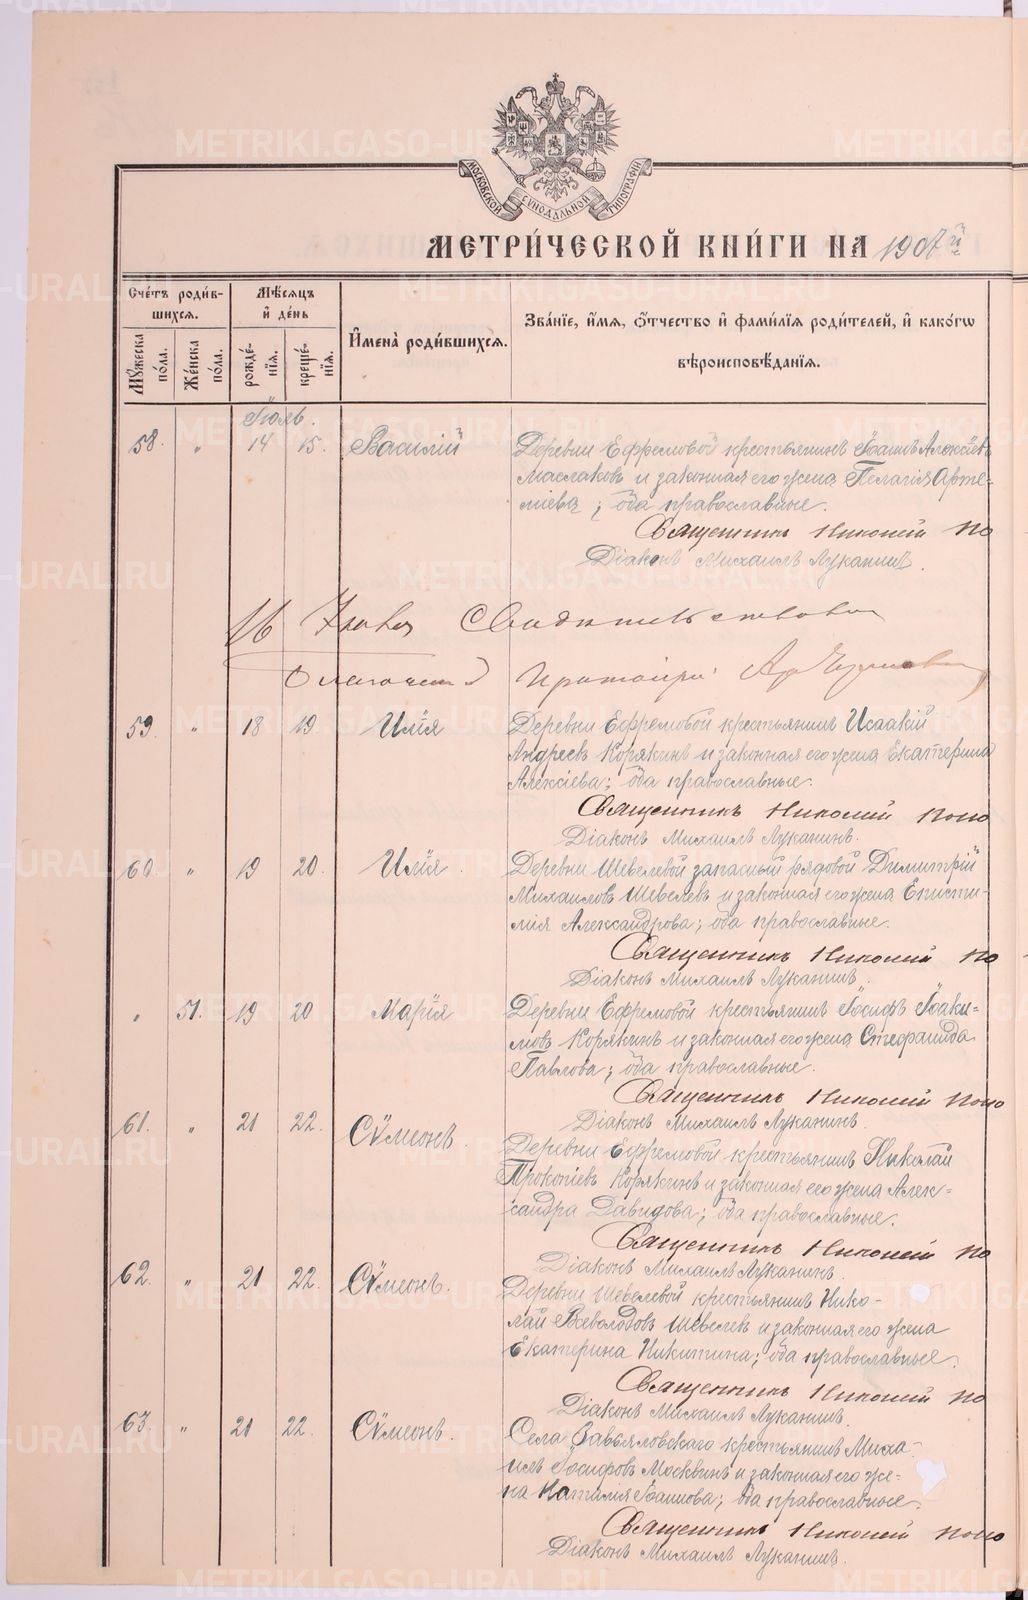 МОСКОВСКОЙ СѴНОДАЛЬНОЙ ТИПОГРАФІИ
МЕТРИ́ЧЕСКОЙ КНИ́ГИ НА 1907й
Сче́тъ роди́вшихсѧ.
Мꙋ́жеска по́ла.
Же́нска по́ла.
Мѣ́сѧцъ и҆ де́нь
рожде́нїѧ.
креще́нїѧ.
И҆мена̀ роди́вшихсѧ.
Зва́нїе, и҆́мѧ, ѻ҆́тчество и҆ фами́лїѧ роди́телей, и҆ како́гѡ
вѣроисповѣ́данїѧ.
Іюль.
58. " 14 15. Василій Деревни Ефремовой крестьянинъ Іоаннъ Алексіевъ
Маслаковъ и законная его жена Пелагія Арте-
міева; оба православные.
Священникъ Николай По
Діаконъ Михаилъ Луканинъ.
Свидѣтельствовалъ
Благочин Протоіерей
59. " 18 19. Илія Деревни Ефремовой крестьянинъ Исаакій
Андреевъ Корякинъ и законная его жена Екатерина
Алексіева; оба православные.
Священникъ Николай Попо
Діаконъ Михаилъ Луканинъ.
60. " 19 20. Илія. Деревни Шевелевой запасный рядовой Димитрій
Михаиловъ Шевелевъ и законная его жена Еписти-
мія Александрова; оба православные.
Священникъ Николай По
Діаконъ Михаилъ Луканинъ.
" 51. 19 20 Марія Деревни Ефремовой крестьянинъ Іосифъ Іоаки-
мовъ Корякинъ и законная его жена Стефанида
Павлова; оба православные.
Священникъ Николай Попо
Діаконъ Михаилъ Луканинъ.
61. " 21 22. Сѵмеонъ. Деревни Ефремовой крестьянинъ Николай
Прокопіевъ Корякинъ и законная его жена Алек-
сандра Давидова; оба православные.
Священникъ Николай По
Діаконъ Михаилъ Луканинъ.
62. " 21 22. Сѵмеонъ. Деревни Шевелевой крестьянинъ Нико-
лай Всеволодовъ Шевелевъ и законная его жена
Екатерина Никитина; оба православные.
Священникъ Николай По
Діаконъ Михаилъ Луканинъ.
63. " 21 22. Сѵмеонъ. Села Завьяловскаго крестьянинъ Миха-
илъ Іосифовъ Москвинъ и законная его же-
на Наталія Іоаннова; оба православные.
Священникъ Николай Попо
Діаконъ Михаилъ Луканинъ.
METRIKI.GASO-URAL.RU